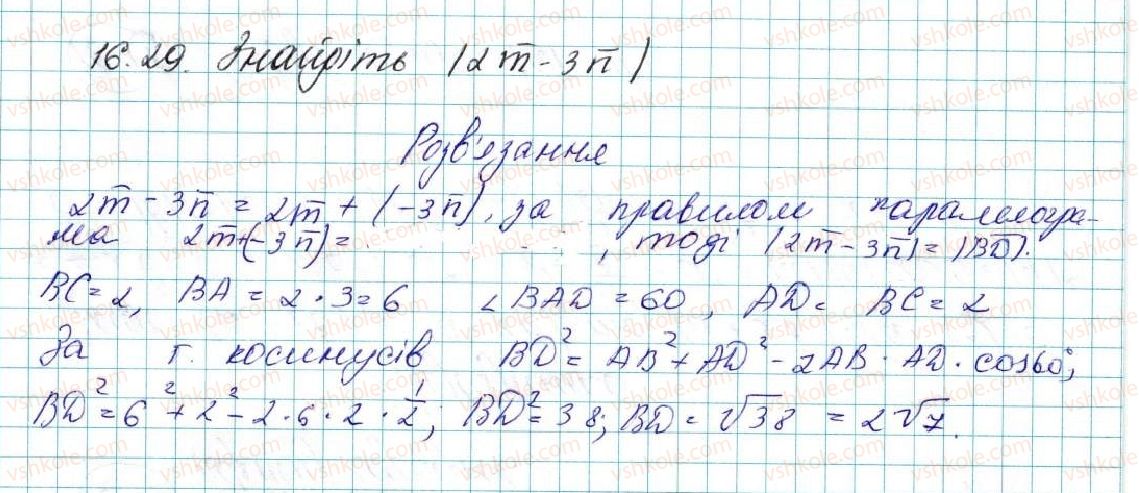 16.29. Знайдіть |2m̅ - 3n̅|
Розв'язання
2m̅ - 3n̅ = 2m̅ + (-3n̅), за правилом паралелогра-
ма 2m̅+(-3n̅) = , тоді |2m̅ - 3n̅| = |B̅D̅|.
BC = 2, BA = 2 · 3 = 6 ∠BAD = 60, AD = BC = 2
За т. косинусів BD² = AB² + AD² - 2AB · AD · cos60°;
BD² = 6² + 2² - 2 · 6 · 2 · 1/2; BD² = 38; BD = √38 = 2√7.